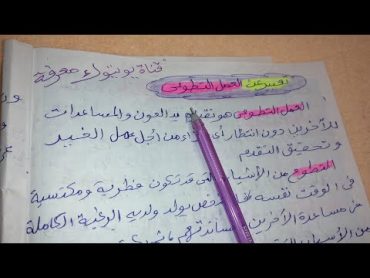 قناة يوتيوب معرفة
تعبير عن العمل التطوعي
العمل التطوعي هو تقديم يد العون والمساعدات
للآخرين دون انتظار أي جزاء من أجل عمل الخير
و تحقيق التقدم
التطوع من الأشياء التي قد تكون فطرية و مكتسبة
في الوقت نفسه شخص يولد ولديه الرغبة الكاملة
من مساعدة الآخرين
من الأسباب